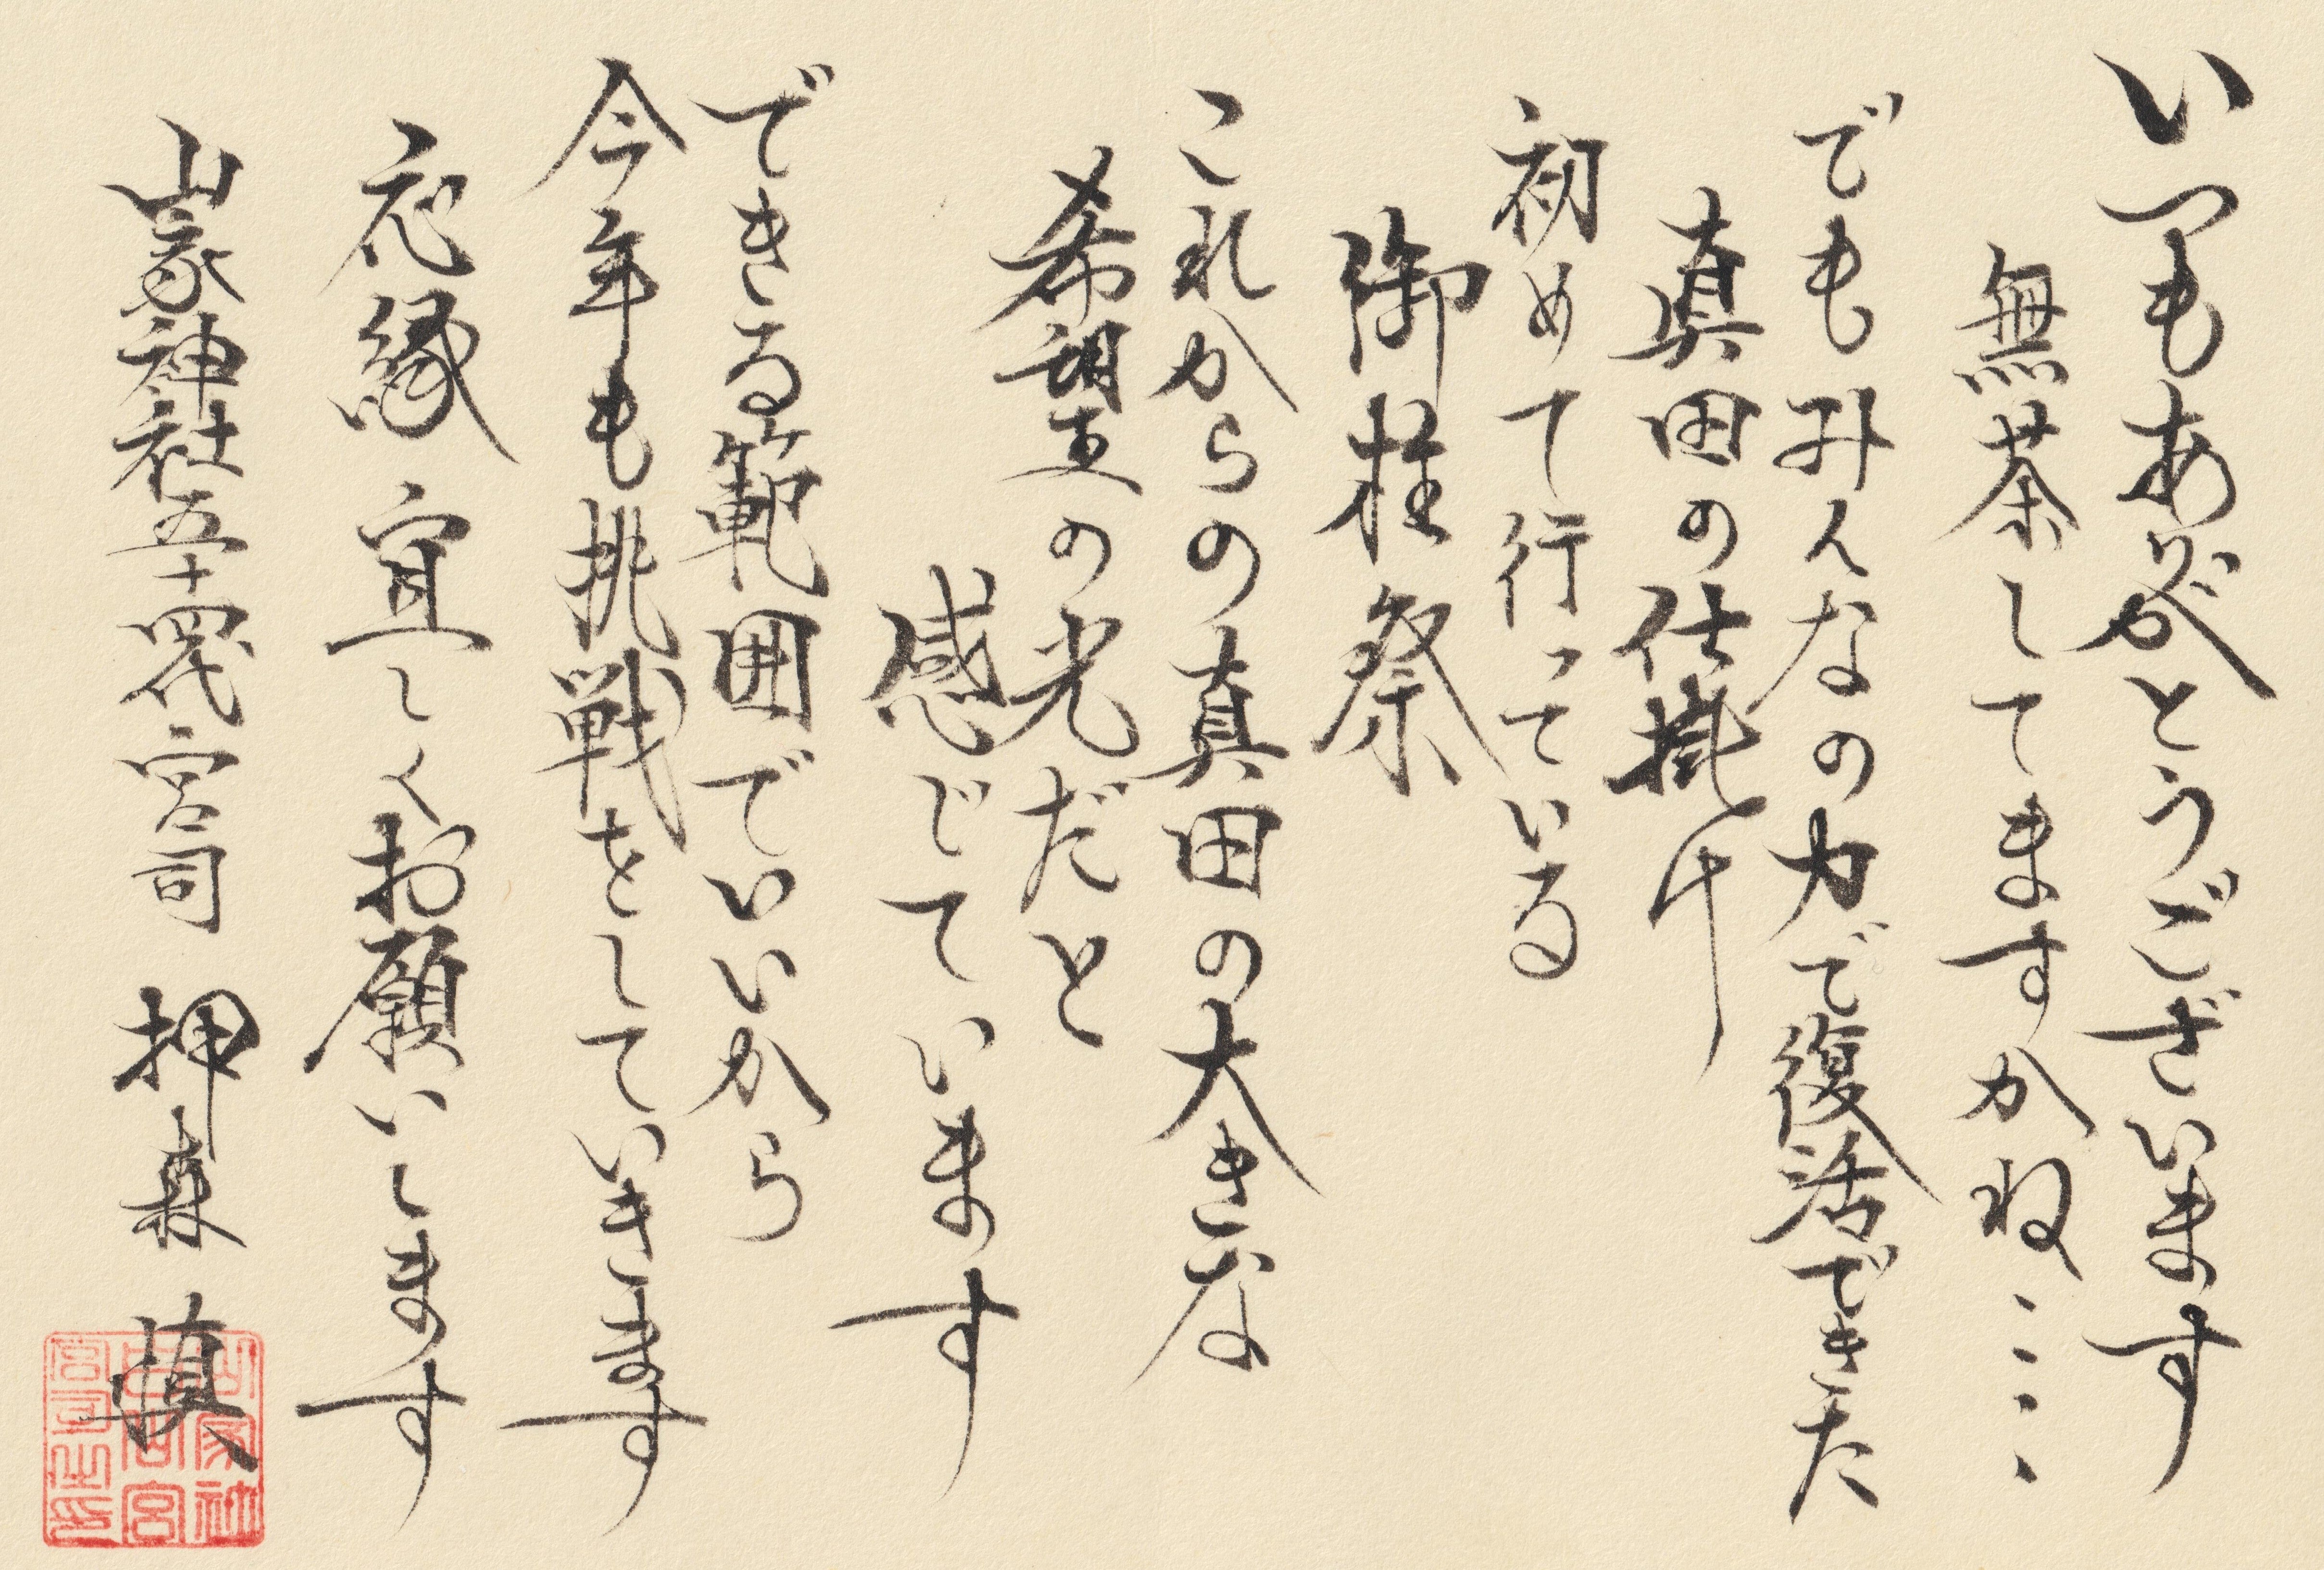 いつもありがとうございます
無茶してますかね……
でもみんなの力で復活できた
真田の仕掛け
初めて行っている
御柱祭
これからの真田の大きな
希望の光だと
感じています
できる範囲でいいから
今年も挑戦をしていきます
応縁宜しくお願いします
山家神社五十四代宮司 押森 慎